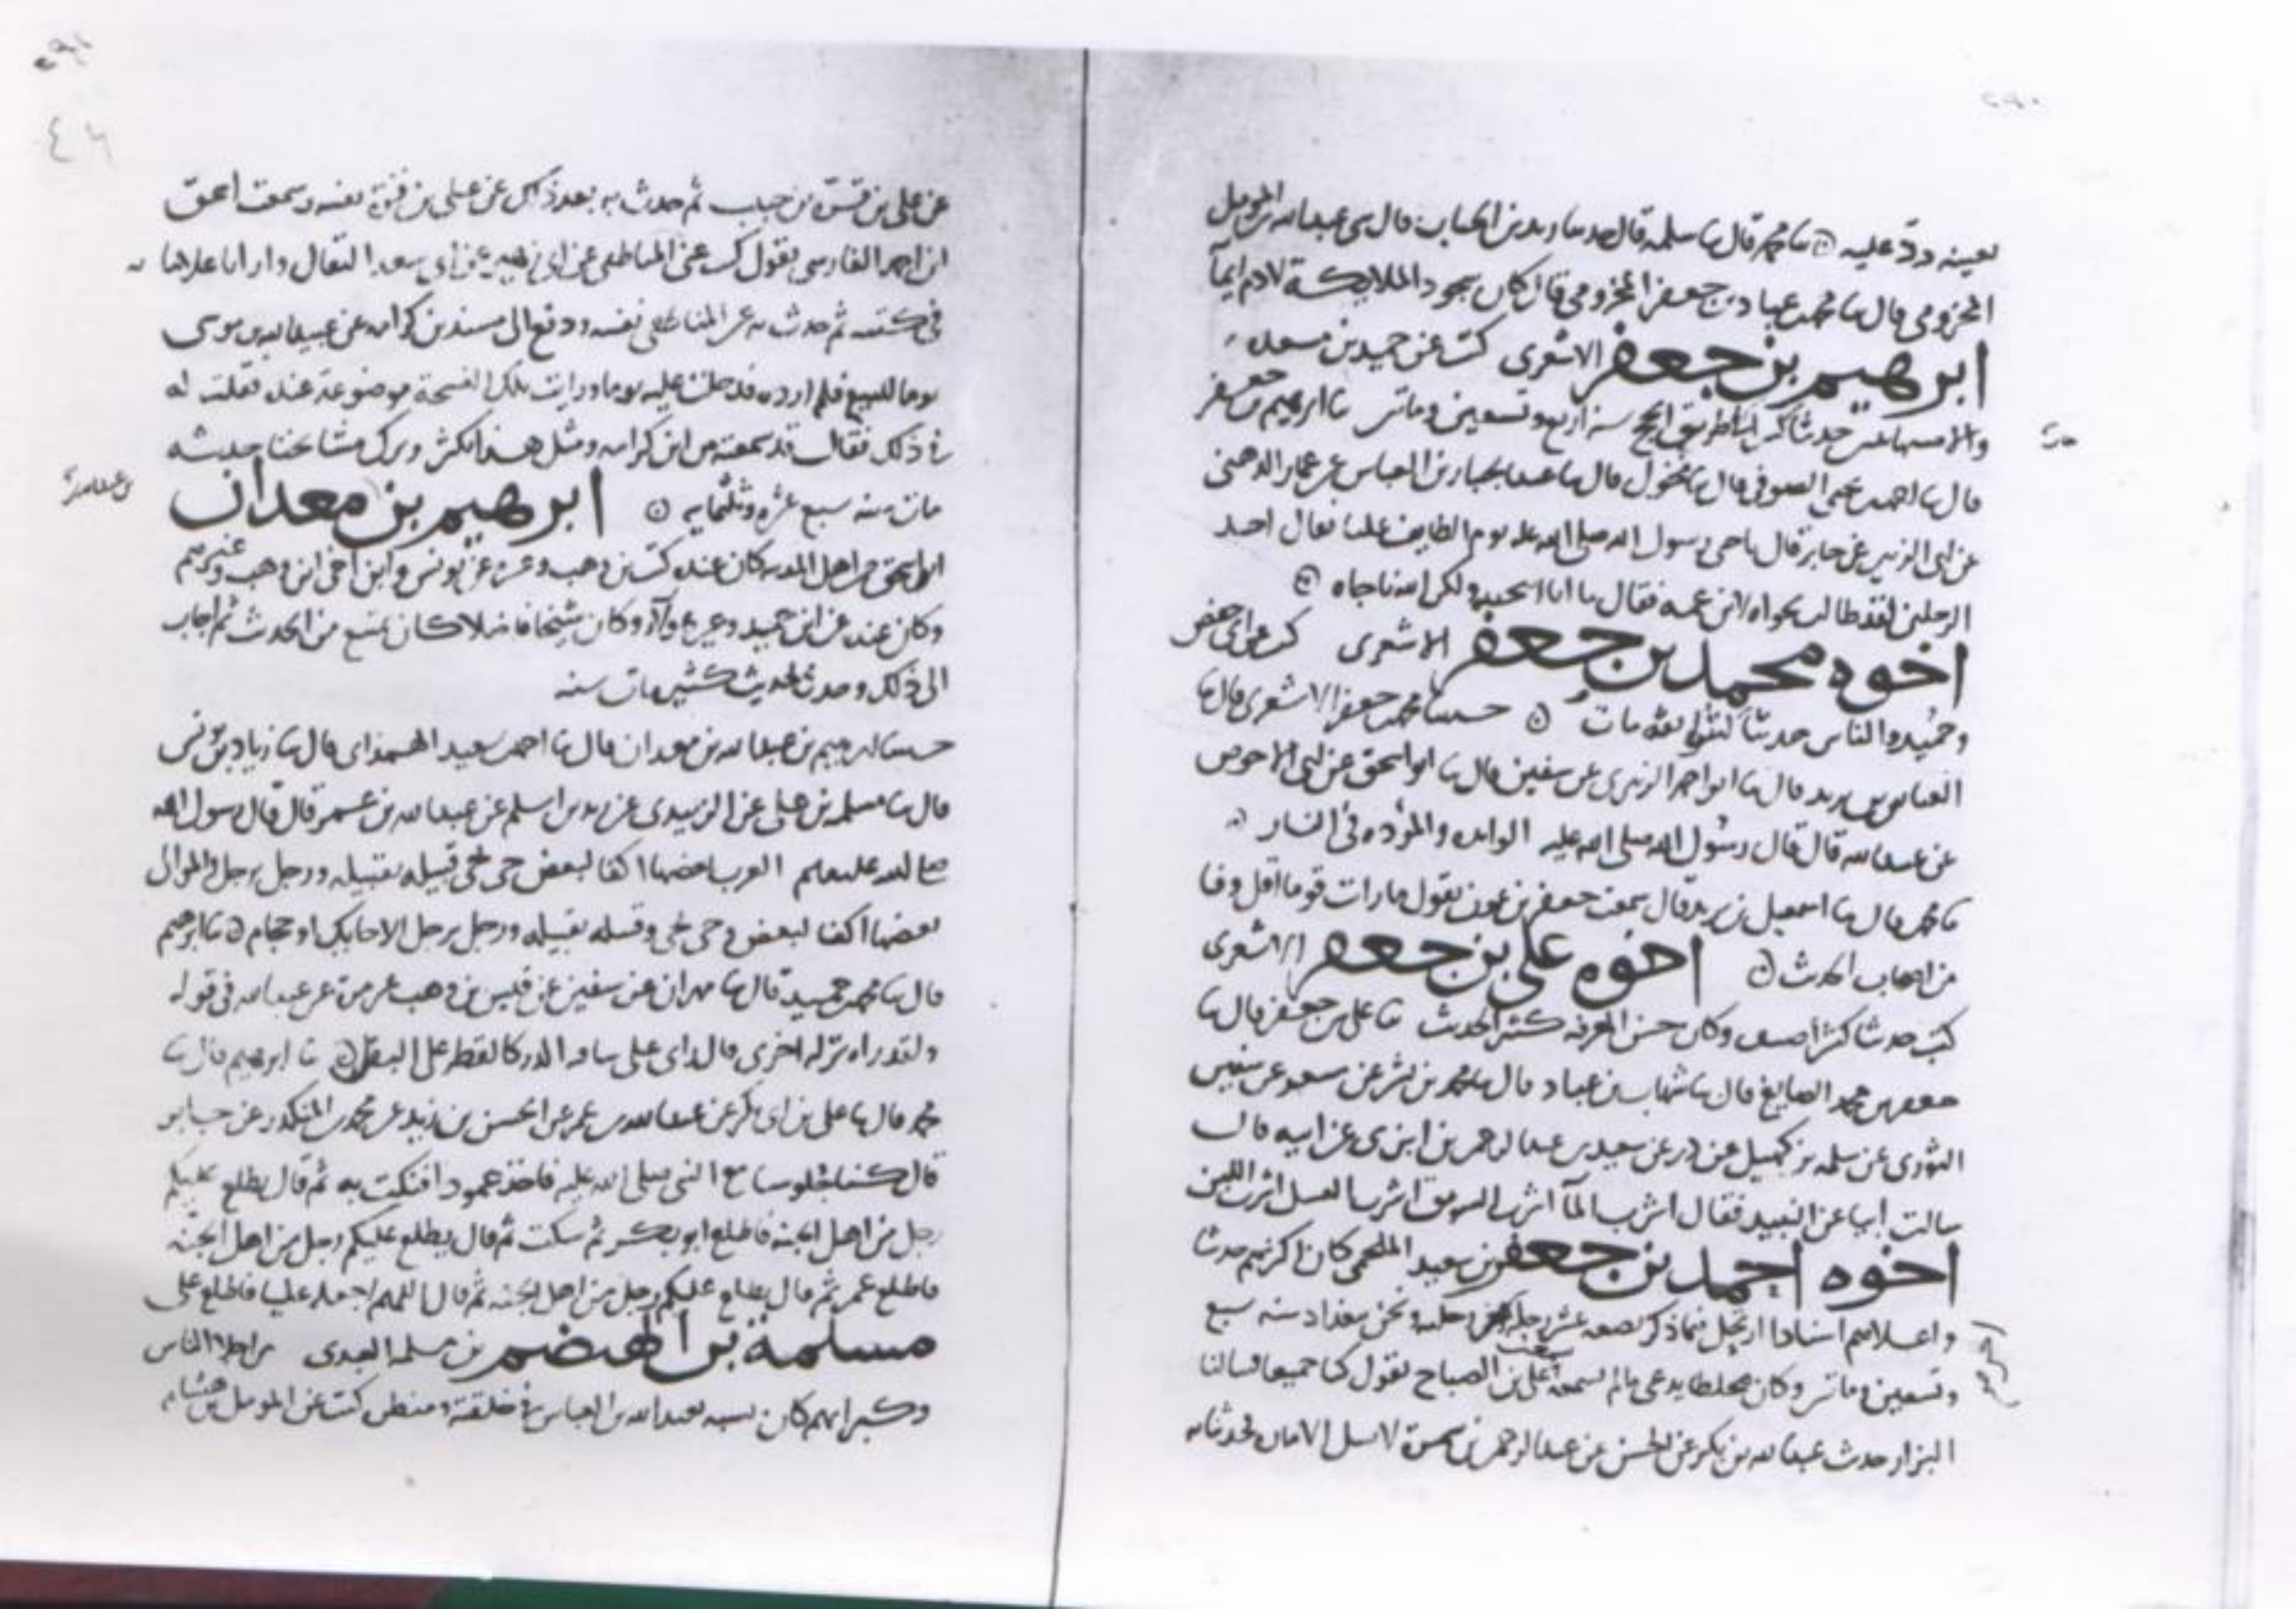 بعينه ورد عليه ۞ ثنا محمد قال ثنا سلمه قال حدثنا زيد بن الحباب قال حدثني عبد الله بن المومل
المخزومي قال ثنا محمد بن عباد بن جعفر المخزومي قال كان سجود الملايكة لادم ايمآ
ابرهيم بن جعفر الاشعري كتب عن حميد بن مسعده
حدثنا لنا طريق الحج سنة اربع وتسعين وماتين ثنا ابرهيم بن جعفر
قال ثنا احمد بن يحيى الصوفي قال ثنا مخول قال ثنا عبد الجبار بن العباس عن عمار الدهني
عن ابي الزبير عن جابر قال ناجى رسول الله صلى الله عليه يوم الطايف عليا فقال احد
الرجلين لقد طالت نجواه لابن عمه فقال ما انا انتجيته ولكن الله ناجاه ۞
اخوه محمد بن جعفر الاشعري كتب عن ابي حفص
وحميد والناس حدثنا مات ۞ حدثنا محمد بن جعفر الاشعري قال ثنا
العباس بن يزيد قال ثنا ابو احمد الزبيري عن سفين قال ثنا ابو اسحق عن ابي الاحوص
عن عبد الله قال قال رسول الله صلى الله عليه الوائده والموؤده في النار
ثنا محمد قال ثنا اسمعيل بن يزيد قال سمعت جعفر بن عون يقول ما رايت قوما اقل وفا
من اصحاب الحديث ۞ اخوه علي بن جعفر الاشعري
كتب حديثا كثيرا وصنف وكان حسن المعرفه كثير الحديث ثنا علي بن جعفر قال ثنا
جعفر بن محمد الصايغ قال ثنا شهاب بن عباد قال ثنا محمد بن بشر عن مسعر عن سفين
الثوري عن سلمه بن كهيل عن ذر عن سعيد بن عبد الرحمن بن ابزى عن ابيه قال
سالت ابيا عن النبيذ فقال اشرب المآ اشرب السويق اشرب العسل اشرب اللبن
اخوه احمد بن جعفر بن سعيد الملحمي كان اكثرهم حديثا
واعلاهم اسنادا ارتحل فيما ذكر بضعه عشر رحله ونحن ببغداد سنه سبع
وتسعين وماتين وكان مخلطا يدعي ما لم يسمعه سمعت علي بن الصباح يقول كنا جميعا فسالنا
البزار حديث عبد الله بن بكر عن الحسن عن عبد الرحمن بن سمرة لا تسل الاماره فحدثنا به
عن علي بن قتيبة بن حبيب ثم حدث به بعد ذلك عن علي بن قتيبة نفسه وسمعت اسحق
ابن احمد الفارسي يقول كتب عن المناطقي عن ابي زهير عن ابي سعد البقال
في كتبه ثم حدث به عن المناطقي نفسه ودفع الي مسند بن كرامه عن عبيد الله بن موسى
يوما للبيع فلم ارده فدخلت عليه يوما ورايت تلك النسخة موضوعة عنده فقلت له
في ذلك فقال قد سمعته من ابن كرامه ومثل هذا يكثر وترك مشايخنا حديثه
مات سنه سبع عشره وثلثمايه ۞ ابرهيم بن معدان
ابو اسحق من اهل المدينه كان عنده كتب بن وهب وغيره عن يونس وابن اخي ابن وهب وغيرهم
وكان عنده عن ابن حميد وكان شيخا فاضلا كان يمتنع من الحديث ثم اجاب
الى ذلك وحدث بحديث كثير مات سنه
حدثنا ابرهيم بن عبد الله بن معدان قال ثنا احمد بن سعيد الهمداني قال ثنا زياد بن يونس
قال ثنا مسلمه بن علي عن الزبيدي عن زيد بن اسلم عن عبد الله بن عمر قال قال رسول الله
صلى الله عليه وسلم العرب بعضها اكفا لبعض حي بحي قبيله بقبيله ورجل برجل والموالي
بعضها اكفا لبعض حي بحي وقبيله بقبيله ورجل برجل الا حايك او حجام ۞ ثنا ابرهيم
قال ثنا محمد بن حميد قال ثنا مهران عن سفين عن قيس بن وهب عن مرة عن عبد الله في قوله
ولقد راه نزلة اخرى قال راى على ساقه الدر كالقطر على البقل ۞ ثنا ابرهيم قال ثنا
محمد قال ثنا علي بن ابي بكر عن عبد الله بن عمر عن الحسن بن زيد عن محمد بن المنكدر عن جابر
قال كنا جلوسا مع النبي صلى الله عليه فاخذ عمودا فنكت به ثم قال يطلع عليكم
رجل من اهل الجنه فاطلع ابو بكر ثم سكت ثم قال يطلع عليكم رجل من اهل الجنه
فاطلع عمر ثم قال يطلع عليكم رجل من اهل الجنه ثم قال اللهم اجعله عليا فاطلع علي
مسلمة بن الهيصم بن مسلمه العبدي من اجلا الناس
وكبرايهم كان يشبه بعبد الله بن العباس في خلقته ومنطقه كتب عن المومل بن هشام